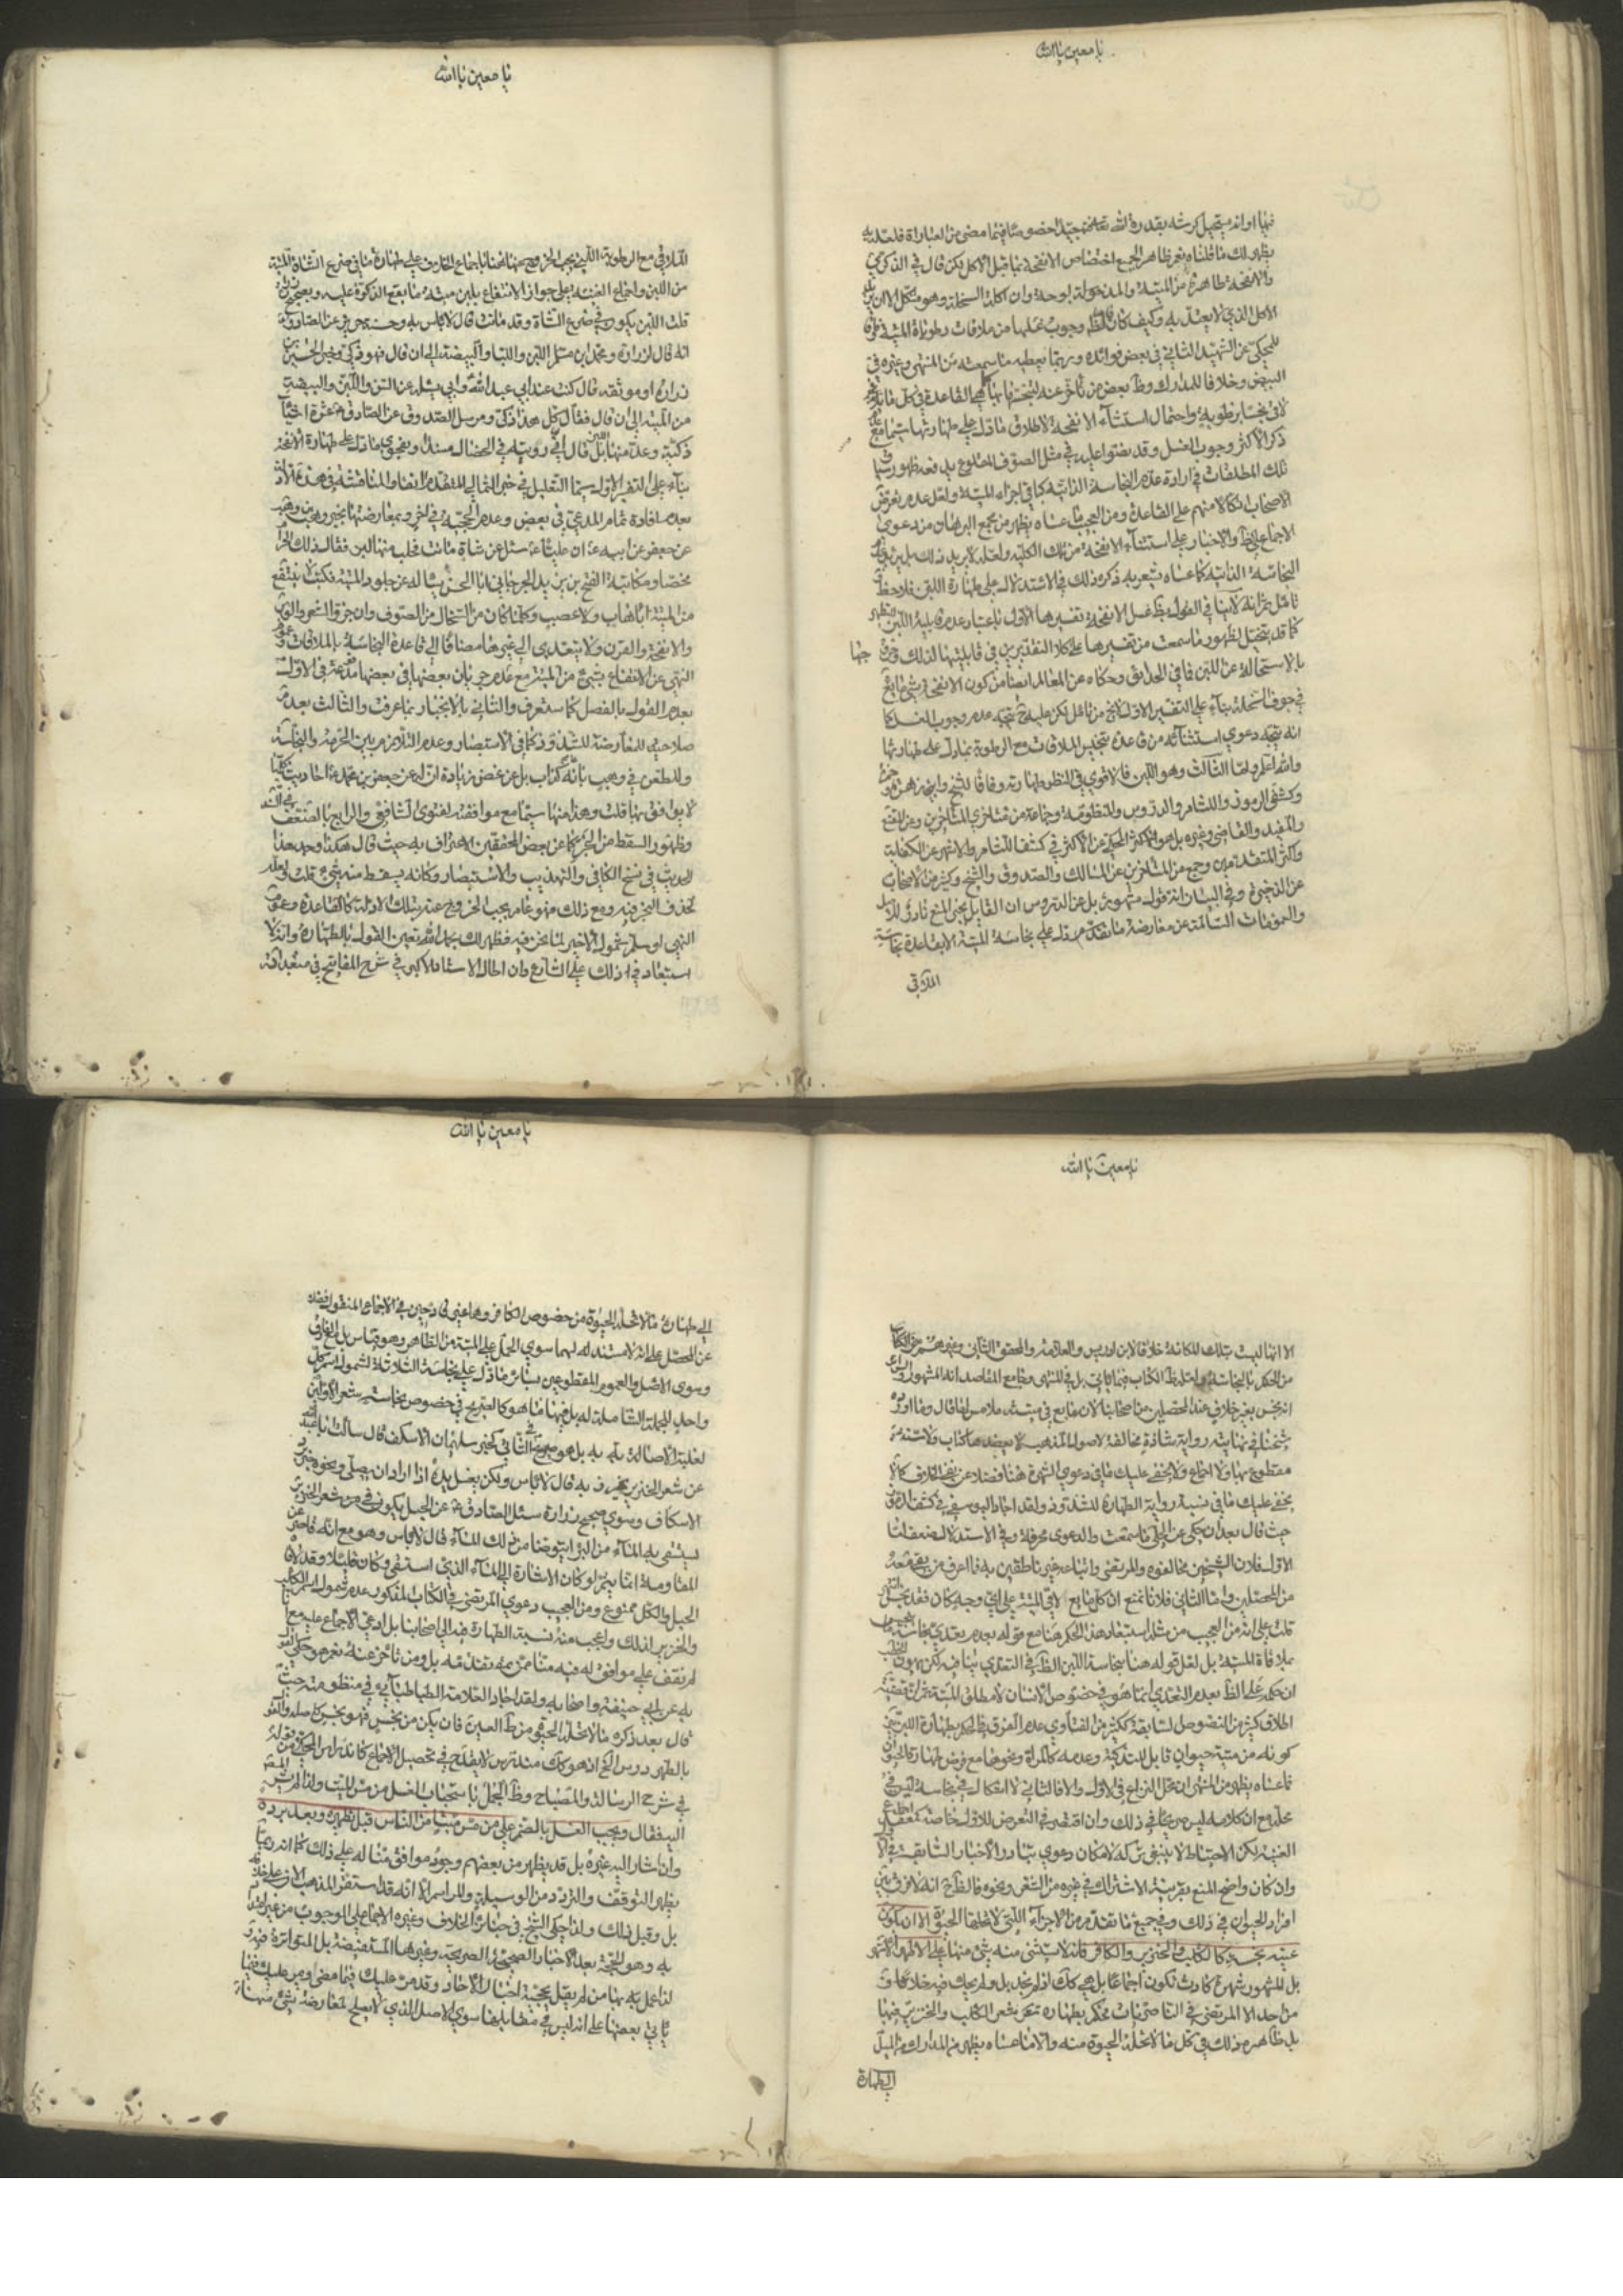 يا معين يا الله
فيها او انه يستحيل كرشه بقدرة الله تعالى
يظهر لك ما قلناه نعم ظاهر الجميع اختصاص الانفحة بما قبل الاكل لكن قال في الذكرى
والانفحة طاهرة من الميتة والمذبوحة وان اكلت السخلة وهو مشكل
الاكل الذي لا يعتد به وكيف كان وجوب غسلها من ملاقات رطوباة الميتة
للمحكي عن الشهيد الثاني في بعض فوائده وربما يعطيه ما سمعته من المنتهى وغيره في
البيض وخلافا للمدارك وظ بعض من تأخر عنه
لاقى نجسا برطوبة واحتمال استثناء الانفحة لاطلاق ما دل على طهارتها سيما مع
ذكر الاكثر وجوب الغسل وقد نصوا عليه في مثل الصوف المقلوع يدفعه ظهور سياق
تلك المطلقات في ارادة عدم النجاسة الذاتية كباقي اجزاء الميتة ولعل عدم تعرض
الاصحاب اتكالا منهم على القاعدة ومن العجب ما عساه يظهر من مجمع البرهان من دعوى
الاجماع والاخبار على استثناء الانفحة من تلك الكلية ولعله لا يريد ذلك بل يريد
النجاسة الذاتية كما عساه يشعر به ذكره ذلك في الاستدلال على طهارة اللبن فلاحظ
كما قد يتخيل لظهور ما سمعت من تفسيرها على كلا التقديرين في قابليتها لذلك
بالاستحالة عن اللبن فما في الحدائق وحكاه عن المعالم ايضا من كون الانفحة شئ مايع
في جوف السخلة بناء على التفسير الاول لا يخ من تامل لكن عليه يتجه عدم وجوب الغسل كما
انه يتجه دعوى استثنائه من قاعدة تنجيس الملاقات مع الرطوبة بما دل على طهارتها
والله اعلم واما الثالث وهو اللبن فالاقوى في النظر طهارته وفاقا للشيخ وابني زهرة
وكشف الرموز واللثام والدروس والمنظومة وجماعة من متاخري المتاخرين وعن المقنع
والمفيد والقاضي وغيره بل هو الاكثر المحكي عن الاكثر في كشف اللثام والاشهر عن الكفاية
واكثر المتقدمين وجمع من المتاخرين عن المسالك والصدوق والشيخ وكثير من الاصحاب
عن الذخيرة وفي البيان انه قول مشهور بل عن الدروس ان القايل بخبر المنع نادر
والعمومات السالمة عن معارضة ما تقدم مما دل على نجاسة الميتة الا قاعدة نجاسة
الملاقي
يا معين يا الله
الملاقي مع الرطوبة التي يجب الخروج عنها هنا باجماع الخلاف على طهارة ما في ضرع الشاة الميتة
من اللبن واجماع الغنية على جواز الانتفاع بلبن ميتة ما يقع الذكوة عليه وبصحيح
قلت اللبن يكون في ضرع الشاة وقد ماتت قال لا باس به وحسنة حريز عن الصادق
انه قال لزرارة ومحمد ابن مسلم اللبن واللبا والبيضة الى ان قال فهو ذكي وخبر الحسين
زرارة او موثقه قال كنت عند ابي عبد الله ع وابي يسئله عن السن واللبن والبيضة
من الميتة الى ان قال فقال كل هذا ذكي ومرسل الصدوق عن الصادق ع عشرة اشياء
ذكية وعد منها اللبن بل قال في رويته في الخصال مسندا وبفحوى ما دل على طهارة الانفحة
بناء على التفسير الاول سيما التعليل في خبر الثمالي المتقدم انفا والمناقشة في هذه
بعدم افادة تمام المدعى في بعض وعدم الحجية في اخر وبمعارضتها بخبر وهب
عن جعفر عن ابيه ع ان عليا ع سئل عن شاة ماتت فحلب منها لبن فقال ذلك الحرام
محضا ومكاتبة الفتح بن يزيد الجرجاني ابا الحسن يساله عن جلود الميتة فكتب لا ينتفع
من الميتة باهاب ولا عصب وكلما كان من السخال من الصوف وان جز والشعر والوبر
والانفحة والقرن ولا يتعدى الى غيرها مضافا الى قاعدة النجاسة بالملاقات
النهي عن الانتفاع بشئ من الميتة مع عدم جريان بعضها في بعضها مدفوعة في الاول
بعدم القول بالفصل كما ستعرف والثاني بالانجبار بما عرفت والثالث بعدم
صلاحيته للمعارضة للشذوذ كما في الاستبصار وعدم التلازم بين الحرمة والنجاسة
وللطعن في وهب بانه كذاب بل عن غض زيادة ان له عن جعفر بن محمد ع احاديث كلها
لا يوافق بها قلت وهذا منها سيما مع موافقته لفتوى الشافعي والرابع بالضعف
وظهور السقط من الخبر كما عن بعض المحققين الاعتراف به حيث قال هكذا وجد هذا
الحديث في نسخ الكافي والتهذيب والاستبصار وكانه يسقط منه شئ قلت
ومع ذلك فهو عام يجب الخروج عنه بتلك الادلة كالقاعدة وعموم
النهي لو سلم شموله الاخير لما نحن فيه فظهر لك بحمد الله تعين القول بالطهارة وانه لا
استبعاد في ذلك على الشارع وان اطال الاستاد الاكبر في شرح المفاتيح في
يا معين يا الله
الا انها ليست بتلك المكانة خلافا لابن ادريس والعلامة والمحقق الثاني وغيرهم
من الحكم بالنجاسة بل في المنتهى وجامع المقاصد انه المشهور
انه نجس بغير خلاف عند المحصلين من اصحابنا لانه مايع في ميتة ملامس لها قال وما اورده
شيخنا في نهايته رواية شاذة مخالفة لاصول المذهب لا يعضدها كتاب ولا سنة
مقطوع بها ولا اجماع ولا يخفى عليك ما في دعوى الشهرة هنا فضلا عن نفي الخلاف كما لا
يخفى عليك ما في نسبة رواية الطهارة للشذوذ ولقد اجاد اليوسفي في كشف الرموز
حيث قال بعد ان حكى عن الحلي ما سمعت والدعوى محرفة وفي الاستدلال ضعف اما
الاول فلان الشيخين مخالفوه والمرتضى واتباعه غير ناطقين به فما اعرف من بقي معه
من المحصلين واما الثاني فلانا نمنع ان كل مايع لاقى الميتة على اي وجه كان فقد نجس
قلت على انه من العجب من مثله استبعاد هذا الحكم هنا مع قوله بعدم تعدي نجاسة
بملاقاة الميتة بل لعل قوله هنا بنجاسة اللبن الظاهر في التعدي ينافيه لكن
ان حكمه على الظ بعدم التعدي انما هو في خصوص الانسان لا مطلق الميتة ثم ان قضية
اطلاق كثير من النصوص السابقة ككثير من الفتاوى عدم الفرق في الحكم بطهارة اللبن بين
كونه من ميتة حيوان قابل للتذكية وعدمه كالمراة ونحوها مع فرض طهارة الحيوان
فما عساه يظهر من المنتهى ان محل النزاع في الاول والا فالثاني لا اشكال في نجاسته ليس في
محله مع ان كلامه ليس صريحا في ذلك وان اقتصر في التعرض للاول خاصة
الغنية لكن الاحتياط لا ينبغي تركه لامكان دعوى تبادر الاخبار السابقة في الا
وان كان واضح المنع بقرينة الاشتراك في غيره من الشعر ونحوه فالظاهر انه لا فرق بين
افراد الحيوان في ذلك وفي جميع ما تقدم من الاجزاء اللتي لا تحلها الحيوة الا ان تكون
عينه نجسة كالكلب والخنزير والكافر فانه لا يستثنى منه شئ منها على الاظهر الاشهر
بل المشهور شهرة كادت تكون اجماعا بل هي كك اذ لم نجد بل ولم يحك فيه خلاف
من احد الا المرتضى في الناصريات فحكم بطهارة شعر الكلب والخنزير فيها
بل ظاهره ذلك في كل ما لا تحله الحيوة منه والا ما عساه يظهر من المدارك من الميل
الى طهارة
يا معين يا الله
الى طهارة ما لا تحله الحيوة من خصوص الكافر وهما غير قادحين في الاجماع المنقول فضلا
عن المحصل على انه لا مستند له لهما سوى الحمل على الميتة من الطاهر وهو قياس بل مع الفارق
وسوى الاصل والعموم المقطوعين بسائر ما دل على نجاسة الثلاثة لشمول اسم كل
واحد للجملة الشاملة له بل فيها ما هو كالصريح في خصوص نجاسة شعر الاولين
لغلبة الاصابة به بل هو صريح الثاني كخبر سليمان الاسكاف قال سالت ابا عبد الله
عن شعر الخنزير يخرز به قال لا باس ولكن يغسل يده اذا اراد ان يصلي ونحوه خبر
الاسكاف وسوى صحيح زرارة سئل الصادق ع عن الحبل يكون من شعر الخنزير
يستقى به الماء من البئر ايتوضا من ذلك الماء قال لا باس وهو مع انه قاصر عن
المقاومة انما يتم لو كان الاشارة الى الماء الذي استقى وكان قليلا وقد لاقاه
الحبل والكل ممنوع ومن العجب دعوى المرتضى في الكتاب المذكور عدم شمول اسم الكلب
والخنزير لذلك واعجب منه نسبة الطهارة فيه الى اصحابنا بل ادعى الاجماع عليه مع انا
لم نقف على موافق له فيه منا ممن تقدمه بل ومن تاخر عنه نعم هو حكي القول
به عن ابي حنيفة واصحابه ولقد اجاد العلامة الطباطبائي في منظومته حيث
قال بعد ذكره ما لا تحله الحيوة من ط العين فان يكن من نجس فهو نجس كاصله والقول
بالطهر درس الخ اذ هو كك مندرس لا يقدح في تحصيل الاجماع كاندراس المحكي عن
في شرح الرسالة والمصباح وظ الجمل باستحباب الغسل من مس الميت ولذا لم يشر المصنف
اليه فقال ويجب الغسل بالضم على من مس ميتا من الناس قبل تطهيره وبعد برده
وان اشار اليه غيره بل قد يظهر من بعضهم وجود موافق منا له على ذلك كما انه ربما
يظهر التوقف والتردد من الوسيلة والمراسم الا انه قد استقر المذهب الان على خلافه
بل وقبل ذلك ولذا حكى الشيخ في جنائز الخلاف وغيره الاجماع على الوجوب من غير
به وهو الحجة بعد الاخبار الصحيحة الصريحة وغيرها المستفيضة بل المتواترة
لذا عمل به بها من لم يقل بحجية اخبار الاحاد وقد مر عليك فيما مضى ويمر عليك فيما
ياتي بعضها على انه ليس في مقابلها سوى الاصل الذي لا يصلح لمعارضة شئ منها